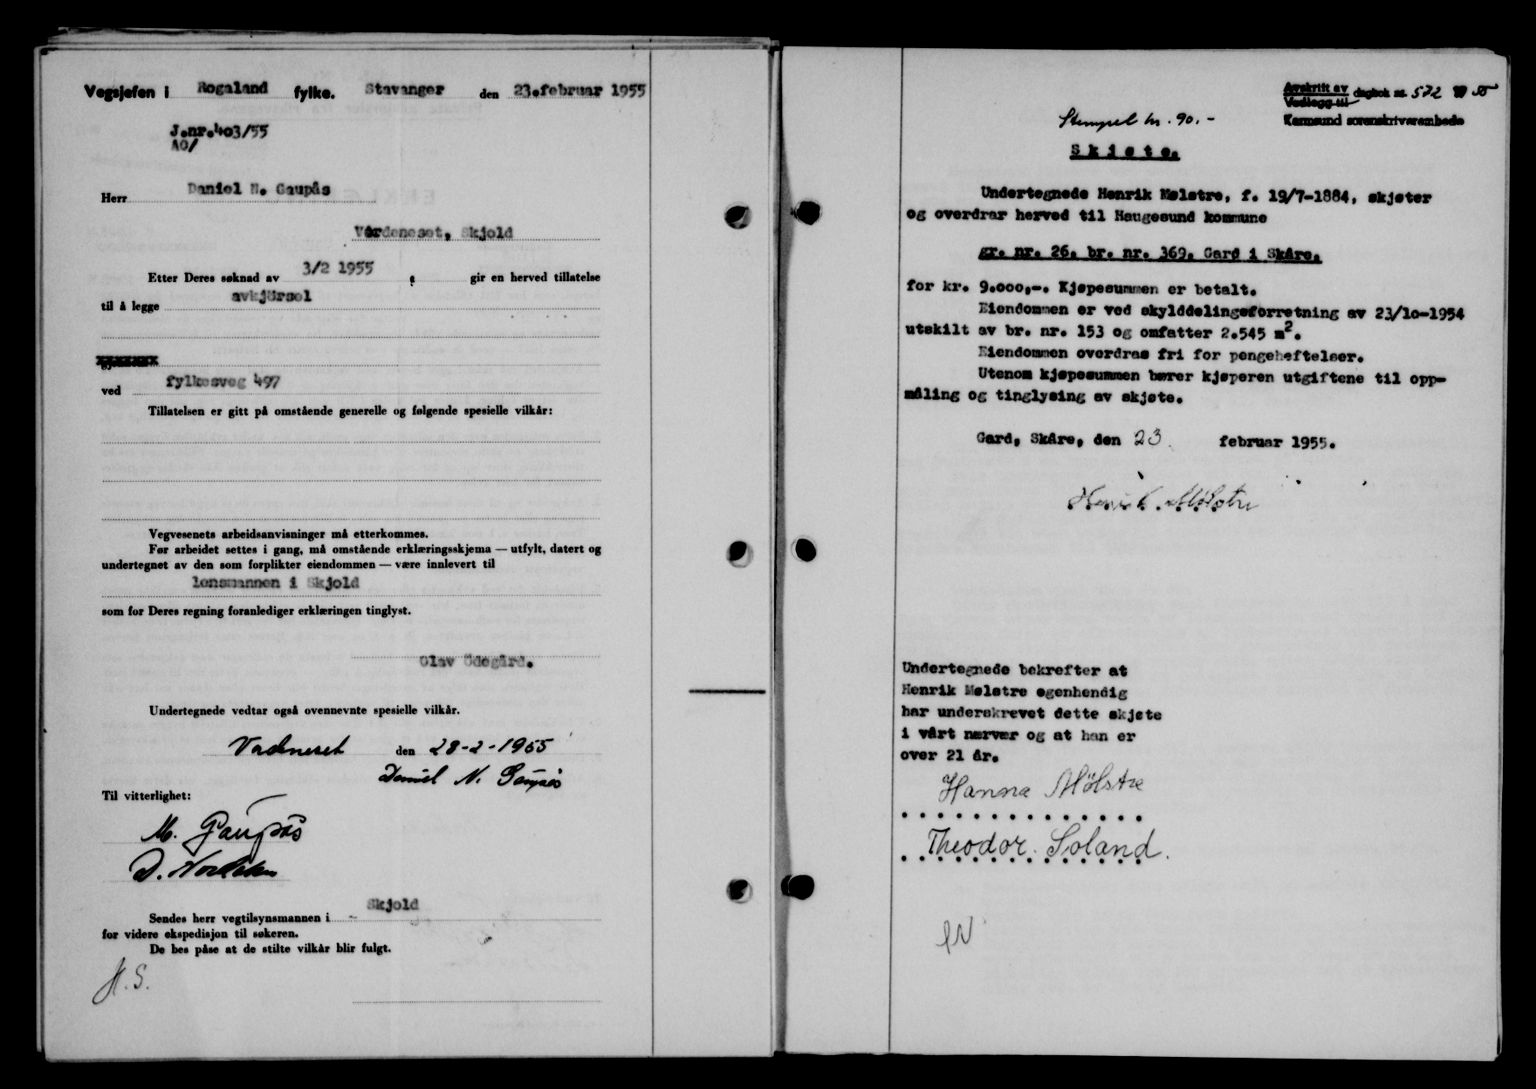 Vegsjefen i Rogaland fylke. Stavanger den 23.februar 1955
J.nr.403/55
AO/
Herr Daniel N. Gaupås
Vårdeneset, Skjold
Etter Deres søknad av 3/2 1955 , gir en herved tillatelse
til å legge avkjörsel
ved fylkesveg 497
Tillatelsen er gitt på omstående generelle og følgende spesielle vilkår:
Vegvesenets arbeidsanvisninger må etterkommes.
Før arbeidet settes i gang, må omstående erklæringsskjema — utfylt, datert og
undertegnet av den som forplikter eiendommen — være innlevert til
lensmannen i Skjold
som for Deres regning foranlediger erklæringen tinglyst.
Olav Ödegård.
Undertegnede vedtar også ovennevnte spesielle vilkår.
den 28-2-1955
Daniel N. Gaupås
Til vitterlighet:
M. Gaupås
Sendes herr vegtilsynsmannen i Skjold
for videre ekspedisjon til søkeren.
De bes påse at de stilte vilkår blir fulgt.
H.S.
Avskrift av
Vedlegg til
dagbok nr. 572 19 55
Karmsund sorenskriverembede
Stempel kr. 90.-
Skjøte.
Undertegnede Henrik Mølstre, f. 19/7-1884, skjøter
og overdrar herved til Haugesund kommune
gr. nr. 26. br. nr. 369. Gard i Skåre.
for kr. 9.000,-. Kjøpesummen er betalt.
Eiendommen er ved skylddelingsforretning av 23/10-1954
utskilt av br. nr. 153 og omfatter 2.545 m2.
Eiendommen overdras fri for pengeheftelser.
Utenom kjøpesummen bærer kjøperen utgiftene til opp-
måling og tinglysing av skjøte.
Gard, Skåre, den 23. februar 1955.
Henrik Mølstre
Undertegnede bekrefter at
Henrik Mølstre egenhendig
har underskrevet dette skjøte
i vårt nærvær og at han er
over 21 år.
Hanna Mölstre
Theodor Soland.